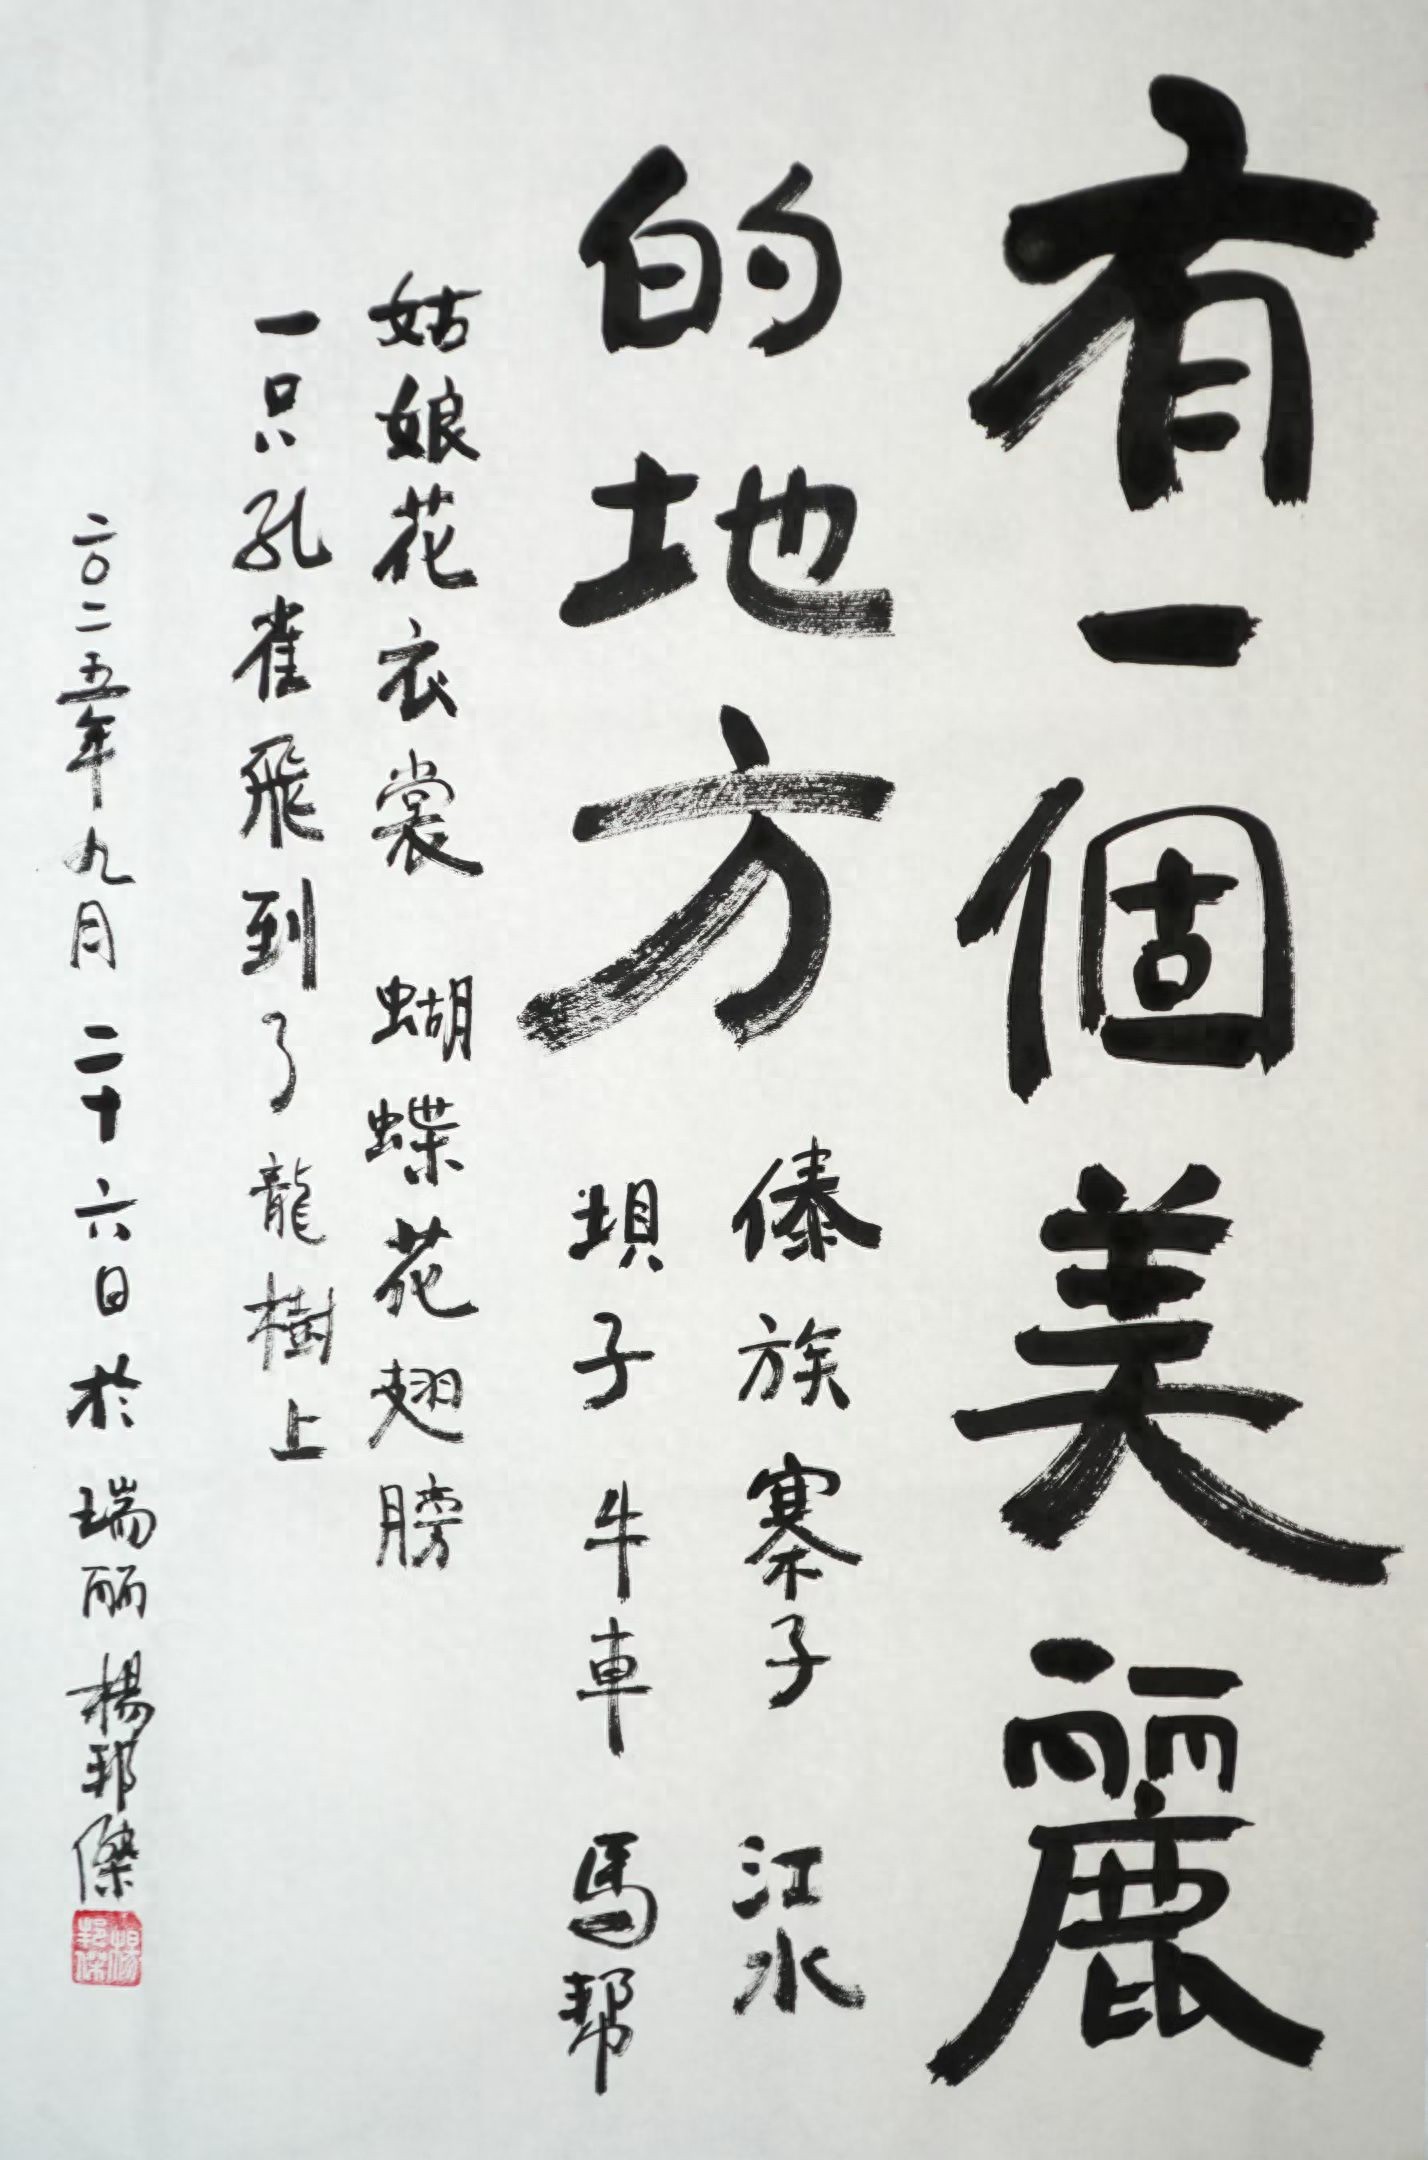 有一個美麗
的地方
傣族寨子 江水
垻子牛車 馬帮
姑娘花衣裳 蝴蝶花翅膀
一只孔雀飛到了龍樹上
二〇二五年九月二十六日於瑞丽楊邦傑
楊邦傑